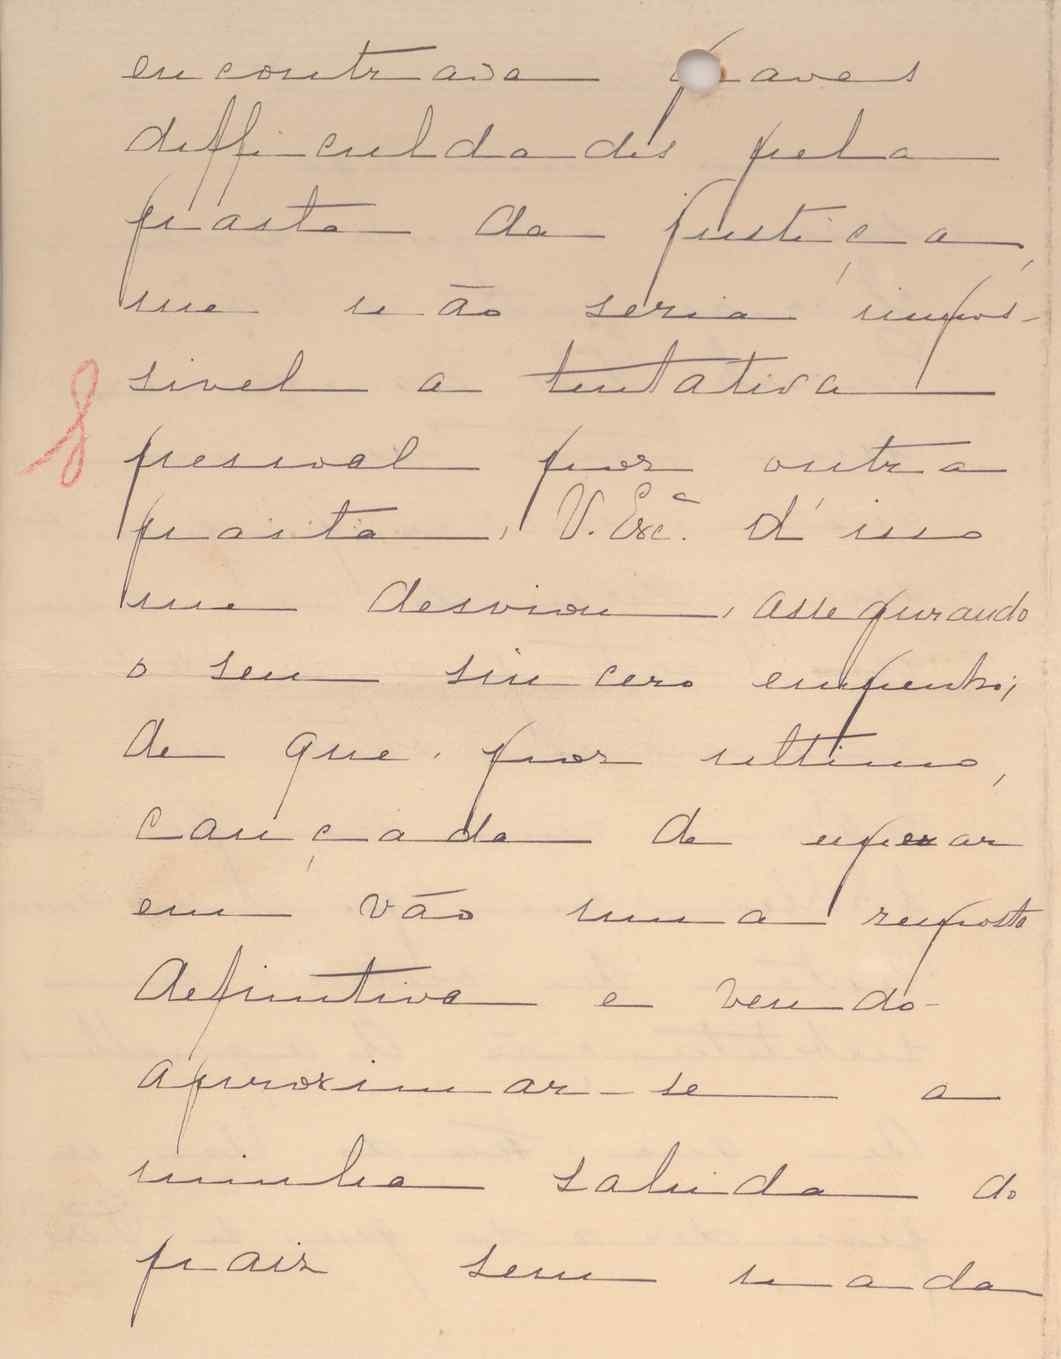 encontrava graves
difficuldades pela
pasta da justiça,
me não seria impos-
sivel a tentativa
pessoal por outra
pasta, V. Exc.ª d'isso
me desviou, assegurando
o seu sincero empenho;
de que, por ultimo,
cançada de esperar
em vão uma resposta
definitiva e vendo
aproximar-se a
minha sahida do
paiz sem nada